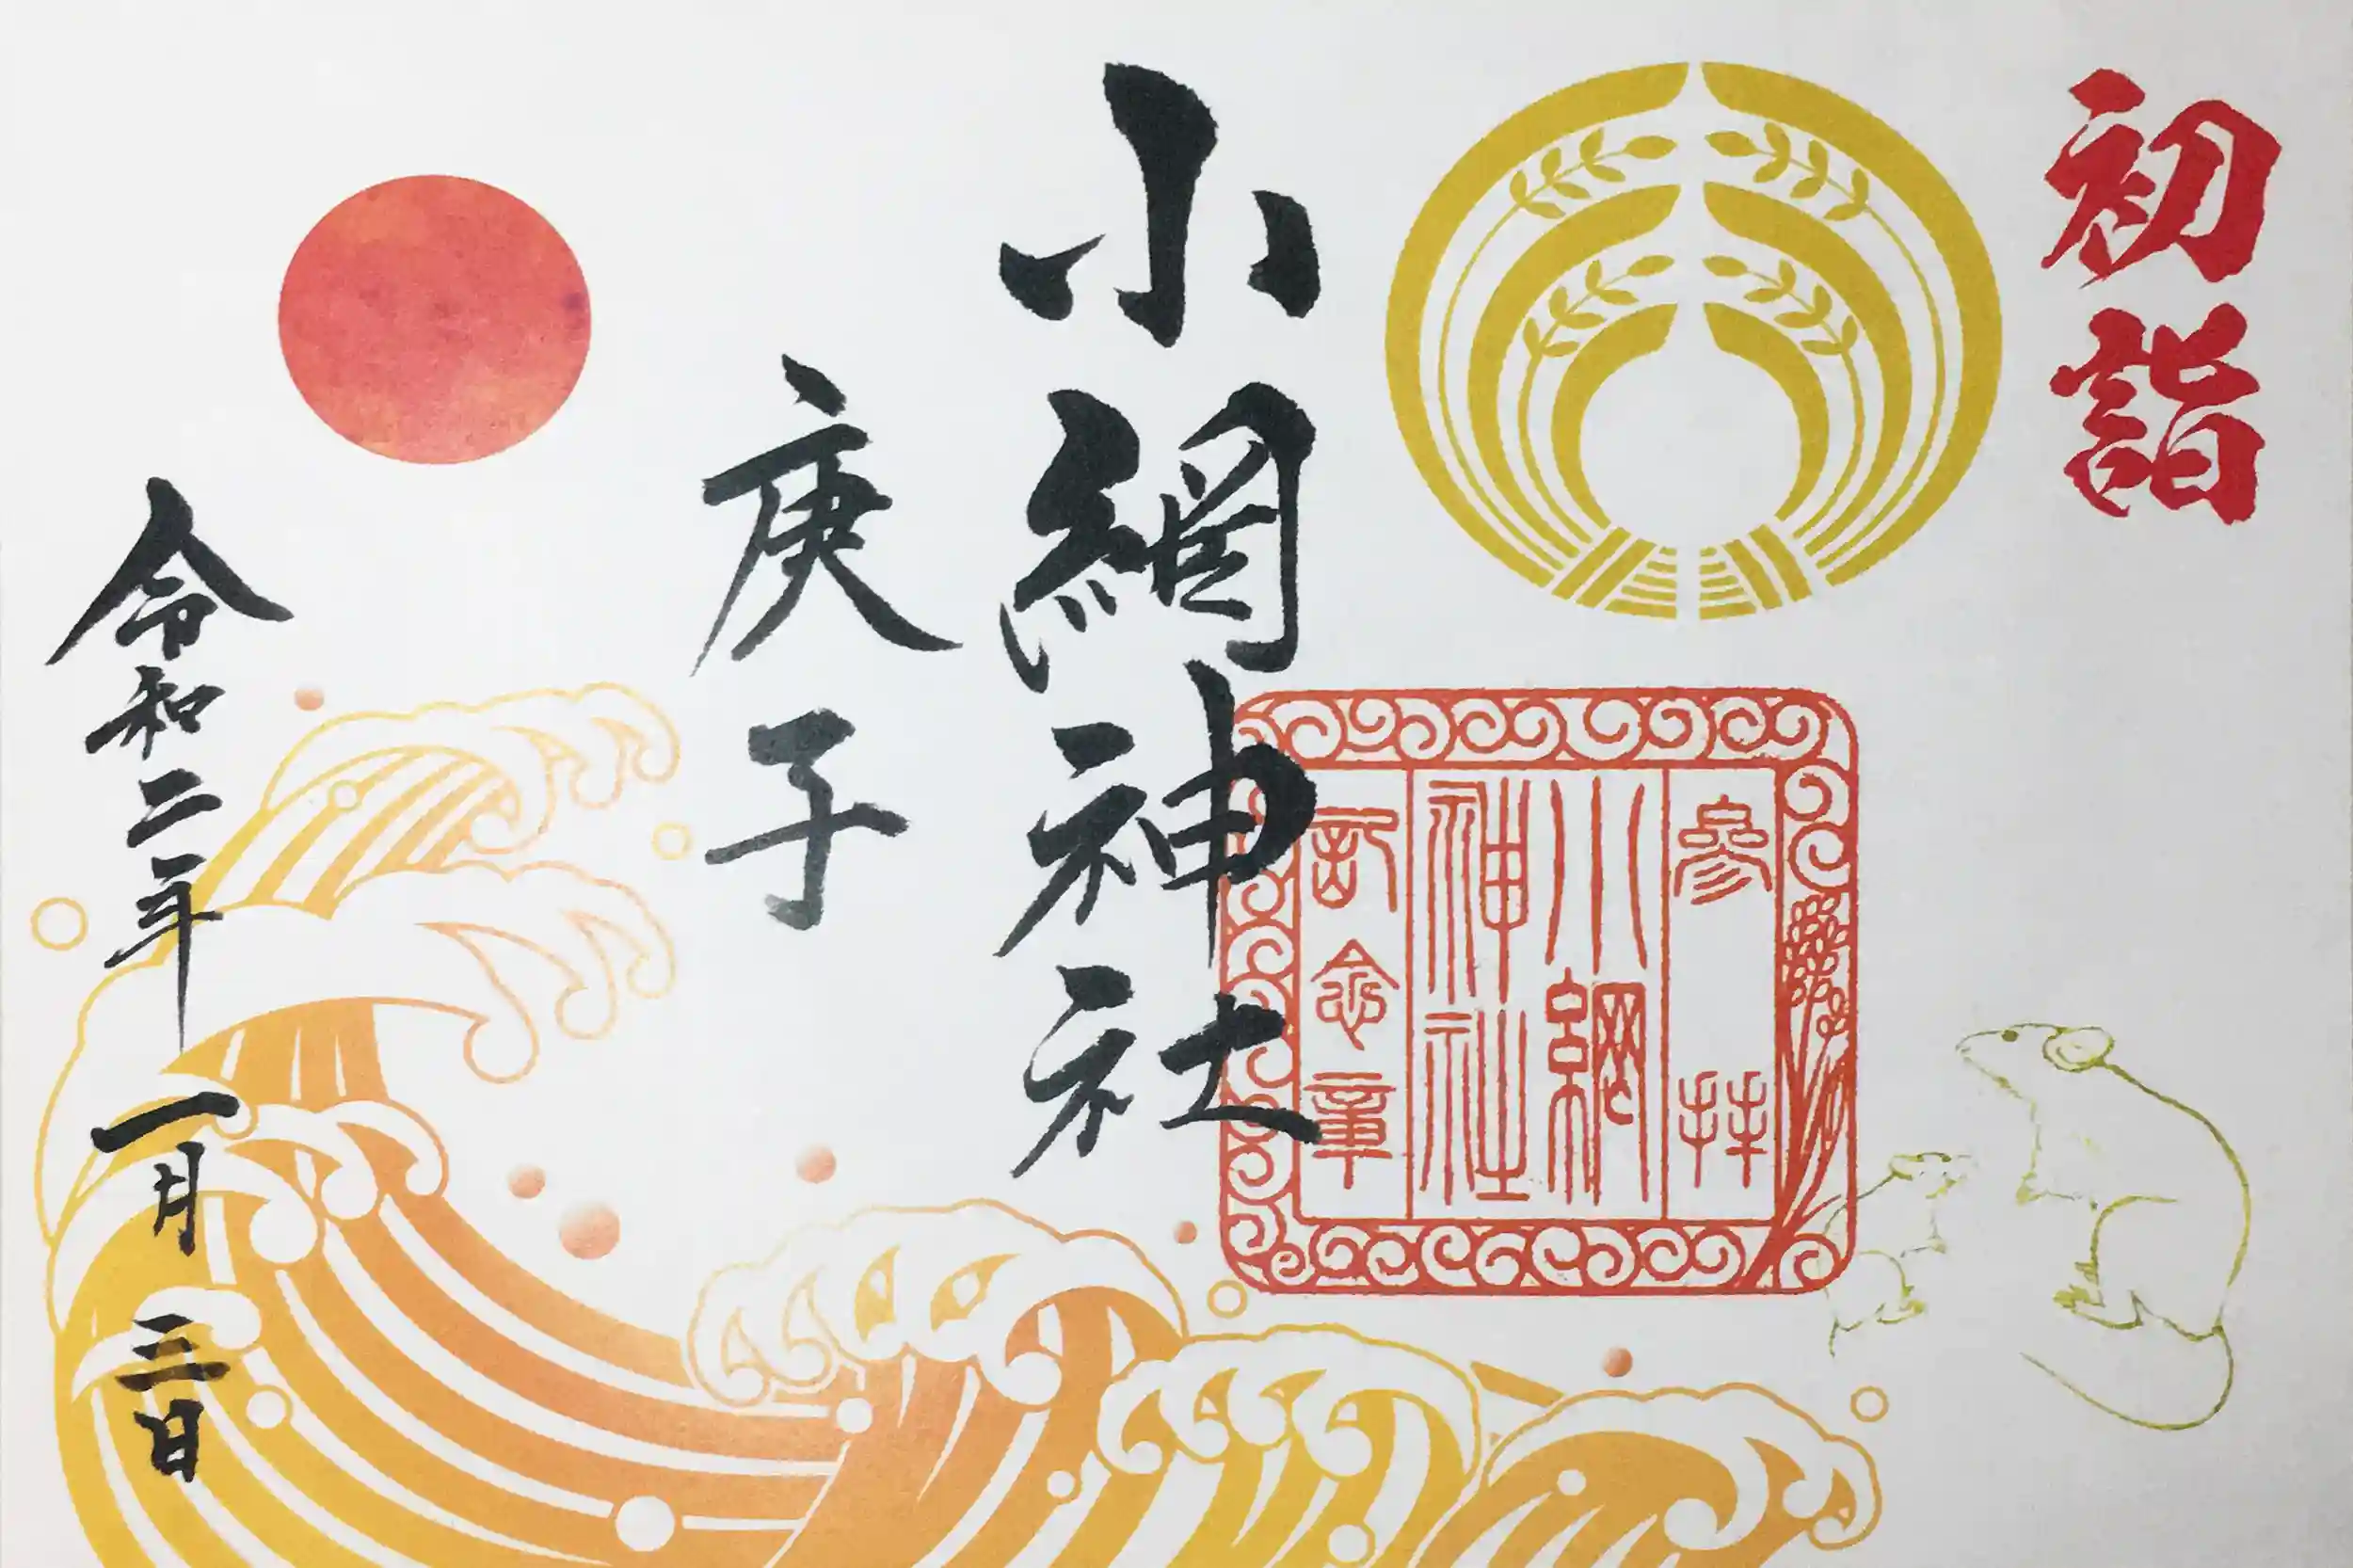 初詣
小網神社
参拝
小網
神社
記念章
庚子
令和二年 一月 三日